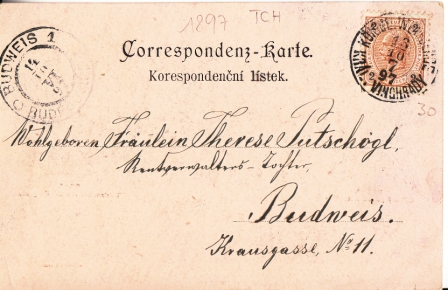 1897 TCH
BUDWEIS 1
BUD
Correspondenz-Karte.
Korespondenční lístek.
13
97
30
Wohlgeboren Fräulein Therese Putschögl,
Rentverwalters-Tochter,
Budweis.
Krausgasse, No 11.